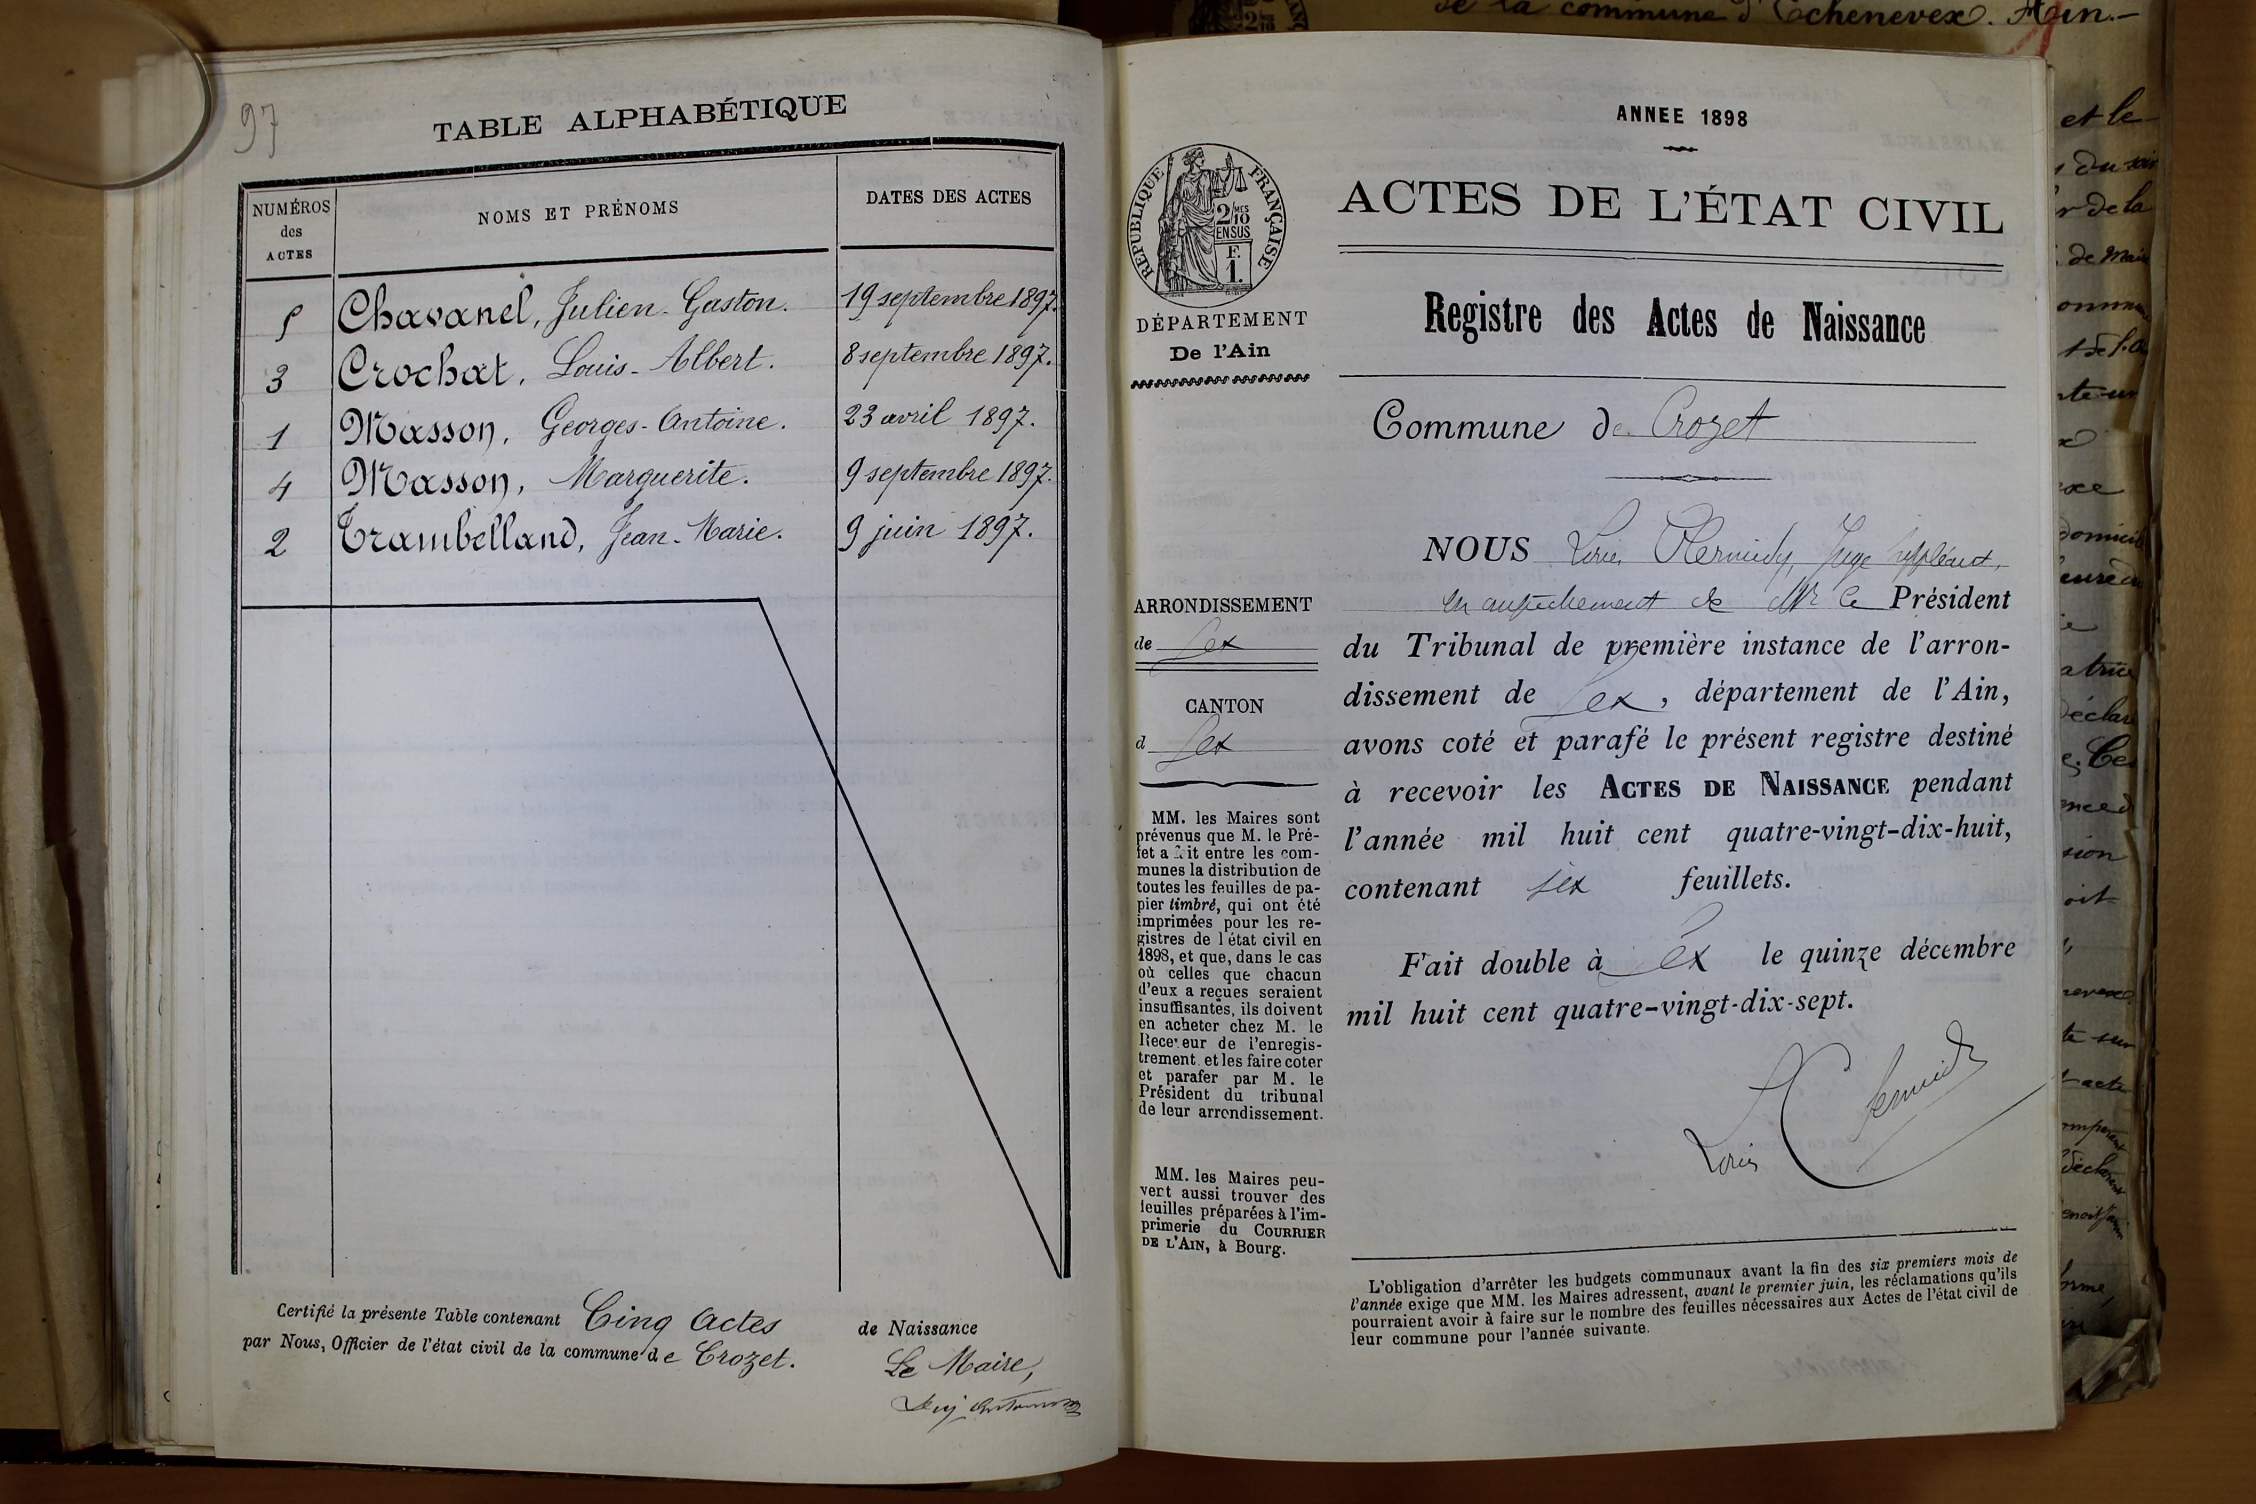 de la commune d'Echenevex. Ain.-
97
TABLE ALPHABÉTIQUE
NUMÉROS
des
ACTES
NOMS ET PRÉNOMS
DATES DES ACTES
5 Chavanel, Julien-Gaston. 19 septembre 1897.
3 Crochat, Louis-Albert. 8 septembre 1897.
1 Masson, Georges-Antoine. 23 avril 1897.
4 Masson, Marguerite. 9 septembre 1897.
2 Trambelland, Jean-Marie. 9 juin 1897.
Certifié la présente Table contenant Cinq Actes de Naissance
par Nous, Officier de l'état civil de la commune de Crozet.
Le Maire,
ANNEE 1898
ACTES DE L'ÉTAT CIVIL
Registre des Actes de Naissance
Commune de Crozet
RÉPUBLIQUE FRANÇAISE
2/10MES
EN SUS
F.
1.
DÉPARTEMENT
De l'Ain
ARRONDISSEMENT
de Gex
CANTON
d Gex
MM. les Maires sont
prévenus que M. le Pré-
fet a fait entre les com-
munes la distribution de
toutes les feuilles de pa-
pier timbré, qui ont été
imprimées pour les re-
gistres de l'état civil en
1898, et que, dans le cas
où celles que chacun
d'eux a reçues seraient
insuffisantes, ils doivent
en acheter chez M. le
Receveur de l'enregis-
trement et les faire coter
et parafer par M. le
Président du tribunal
de leur arrondissement.
MM. les Maires peu-
vent aussi trouver des
feuilles préparées à l'im-
primerie du COURRIER
DE L'AIN, à Bourg.
NOUS Louis Juge suppléant,
en empêchement de Mr le Président
du Tribunal de première instance de l'arron-
dissement de Gex, département de l'Ain,
avons coté et parafé le présent registre destiné
à recevoir les ACTES DE NAISSANCE pendant
l'année mil huit cent quatre-vingt-dix-huit,
contenant six feuillets.
Fait double à Gex le quinze décembre
mil huit cent quatre-vingt-dix-sept.
Louis
L'obligation d'arrêter les budgets communaux avant la fin des six premiers mois de
l'année exige que MM. les Maires adressent, avant le premier juin, les réclamations qu'ils
pourraient avoir à faire sur le nombre des feuilles nécessaires aux Actes de l'état civil de
leur commune pour l'année suivante.